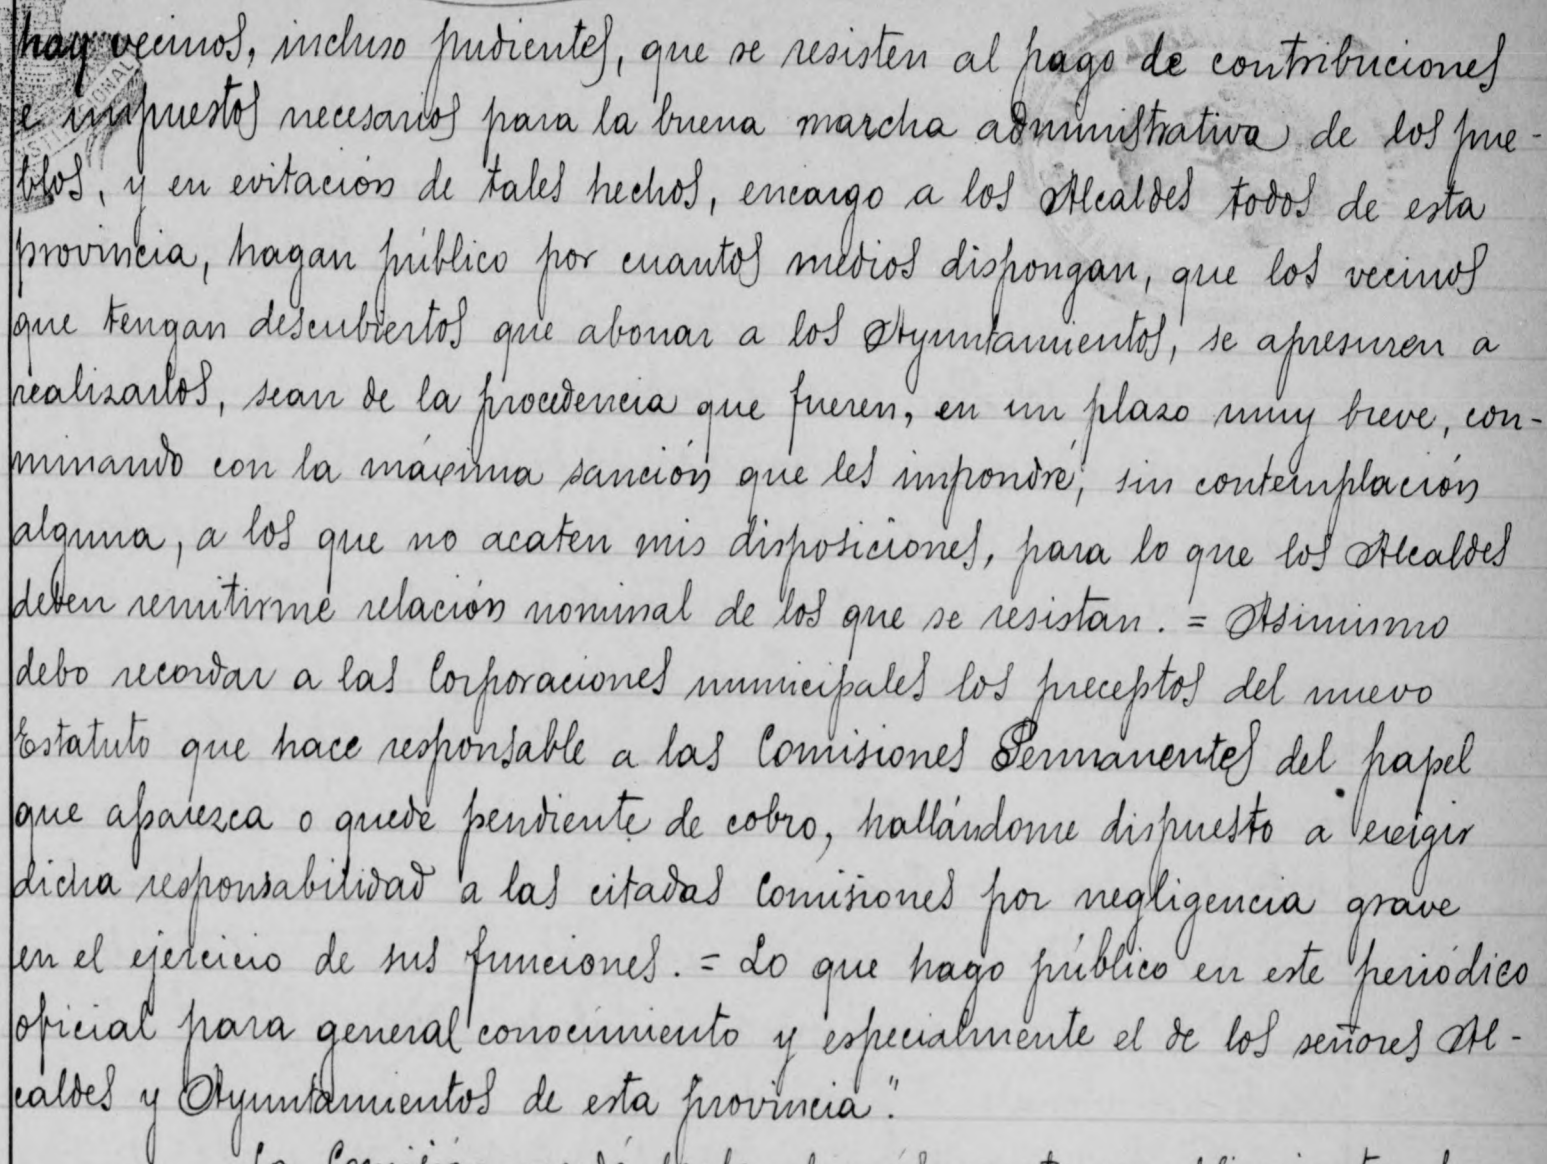 hay vecinos, incluso pudientes, que se resisten al pago de contribuciones
e impuestos necesarios para la buena marcha administrativa de los pue-
blos, y en evitación de tales hechos, encargo a los Alcaldes todos de esta
provincia, hagan público por cuantos medios dispongan, que los vecinos
que tengan descubiertos que abonar a los Ayuntamientos, se apresuren a
realizarlos, sean de la procedencia que fueren, en un plazo muy breve, con-
minando con la máxima sanción que les impondré, sin contemplación
alguna, a los que no acaten mis disposiciones, para lo que los Alcaldes
deben remitirme relación nominal de los que se resistan. = Asimismo
debo recordar a las Corporaciones municipales los preceptos del nuevo
Estatuto que hace responsable a las Comisiones Permanentes del papel
que aparezca o quede pendiente de cobro, hallándome dispuesto a exigir
dicha responsabilidad a las citadas Comisiones por negligencia grave
en el ejercicio de sus funciones. = Lo que hago público en este periódico
oficial para general conocimiento y especialmente el de los señores Al-
caldes y Ayuntamientos de esta provincia".